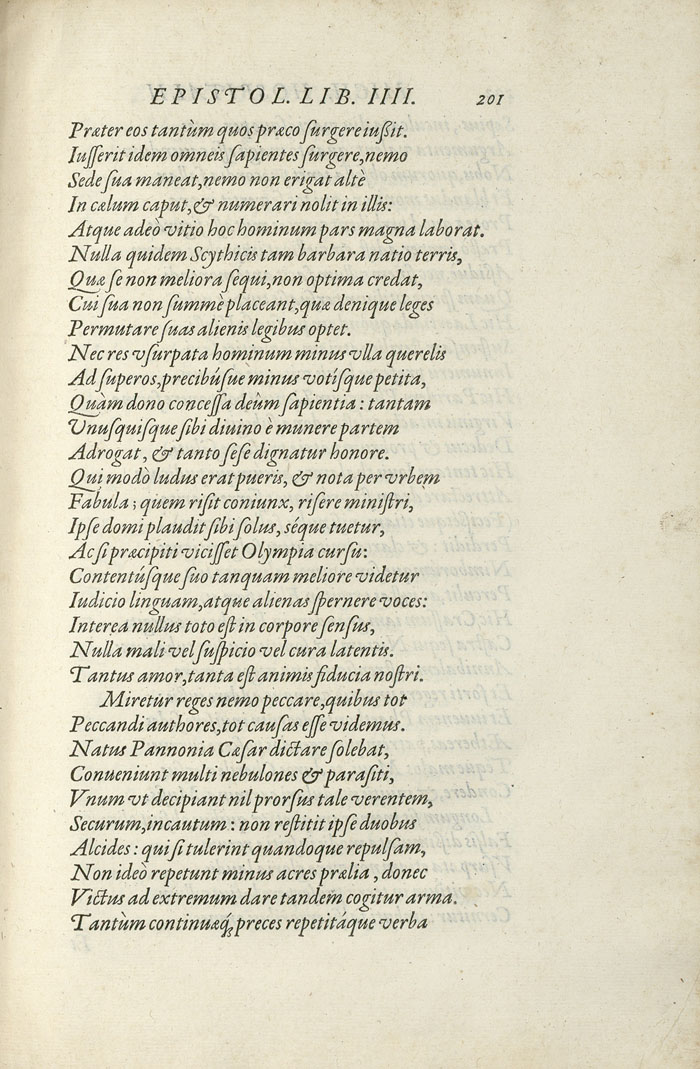 EPISTOL. LIB. IIII. 201
Præter eos tantùm quos præco surgere iußit.
Iusserit idem omneis sapientes surgere, nemo
Sede sua maneat, nemo non erigat altè
In cælum caput, & numerari nolit in illis:
Atque adeò vitio hoc hominum pars magna laborat.
Nulla quidem Scythicis tam barbara natio terris,
Quæ se non meliora sequi, non optima credat,
Cui sua non summè placeant, quæ denique leges
Permutare suas alienis legibus optet.
Nec res vsurpata hominum minus vlla querelis
Ad superos, precibúsue minus votísque petita,
Quàm dono concessa deûm sapientia: tantam
Vnusquisque sibi diuino è munere partem
Adrogat, & tanto sese dignatur honore.
Qui modò ludus erat pueris, & nota per vrbem
Fabula; quem risit coniunx, risere ministri,
Ipse domi plaudit sibi solus, séque tuetur,
Ac si præcipiti vicisset Olympia cursu:
Contentúsque suo tanquam meliore videtur
Iudicio linguam, atque alienas spernere voces:
Interea nullus toto est in corpore sensus,
Nulla mali vel suspicio vel cura latentis.
Tantus amor, tanta est animis fiducia nostri.
Miretur reges nemo peccare, quibus tot
Peccandi authores, tot causas esse videmus.
Natus Pannonia Cæsar dictare solebat,
Conueniunt multi nebulones & parasiti,
Vnum vt decipiant nil prorsus tale verentem,
Securum, incautum: non restitit ipse duobus
Alcides: qui si tulerint quandoque repulsam,
Non ideò repetunt minus acres prælia, donec
Victus ad extremum dare tandem cogitur arma.
Tantùm continuæq́; preces repetitáque verba